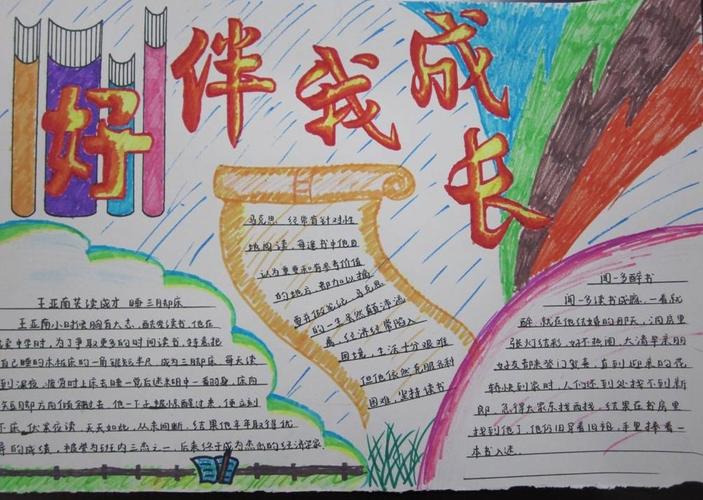 好伴我成长
王亚南苦读成才 睡三月却床
王亚南小时候胸有大志，酷爱读书，他在
读中学时，为了争取更多的时间读书，特意把
自己睡的木板床的一角锯短半尺，成为三脚床，每天读
到深夜，疲劳时上床去睡一觉后迷糊中一翻身，床向
短脚方向倾斜过去，他一下子被惊醒过来，便立刻
下床，伏案夜读，天天如此，从未间断，结果他年年取得优
异的成绩，被誉为班内三杰之一，后来终于成为杰出的经济学家。
马克思 经常有针对性
地阅读，每逢书中他自
认为重要和有参考价值
的地方，都为以摘
要并做笔记，马克思
的一生虽然颠沛流
离，经济经常陷入
困境，生活十分艰难
但他依然克服各种
困难，坚持读书
闻一多醉书
闻一多读书成瘾，一看就
醉，就在他结婚的那天，洞房里
张灯结彩，好不热闹，大清早亲朋
好友都来登门贺喜，直到迎亲的花
轿快到家时，人们还到处找不到新
郎，急得大家东找西找，结果在书房里
找到他了，他仍旧穿着旧袍，手里捧着一
本书入迷。